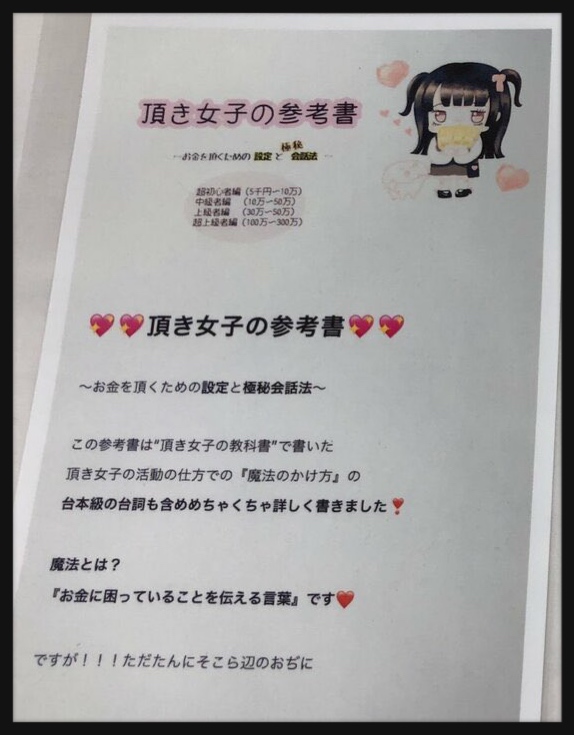 頂き女子の参考書
―お金を頂くための 設定 と 極秘 会話法 ―
超初心者編（5千円〜10万）
中級者編　（10万〜50万）
上級者編　（30万〜50万）
超上級者編（100万〜300万）
💖💖頂き女子の参考書💖💖
〜お金を頂くための設定と極秘会話法〜
この参考書は"頂き女子の教科書"で書いた
頂き女子の活動の仕方での『魔法のかけ方』の
台本級の台詞も含めめちゃくちゃ詳しく書きました❣️
魔法とは？
『お金に困っていることを伝える言葉』です❤️
ですが！！！ただたんにそこら辺のおぢに